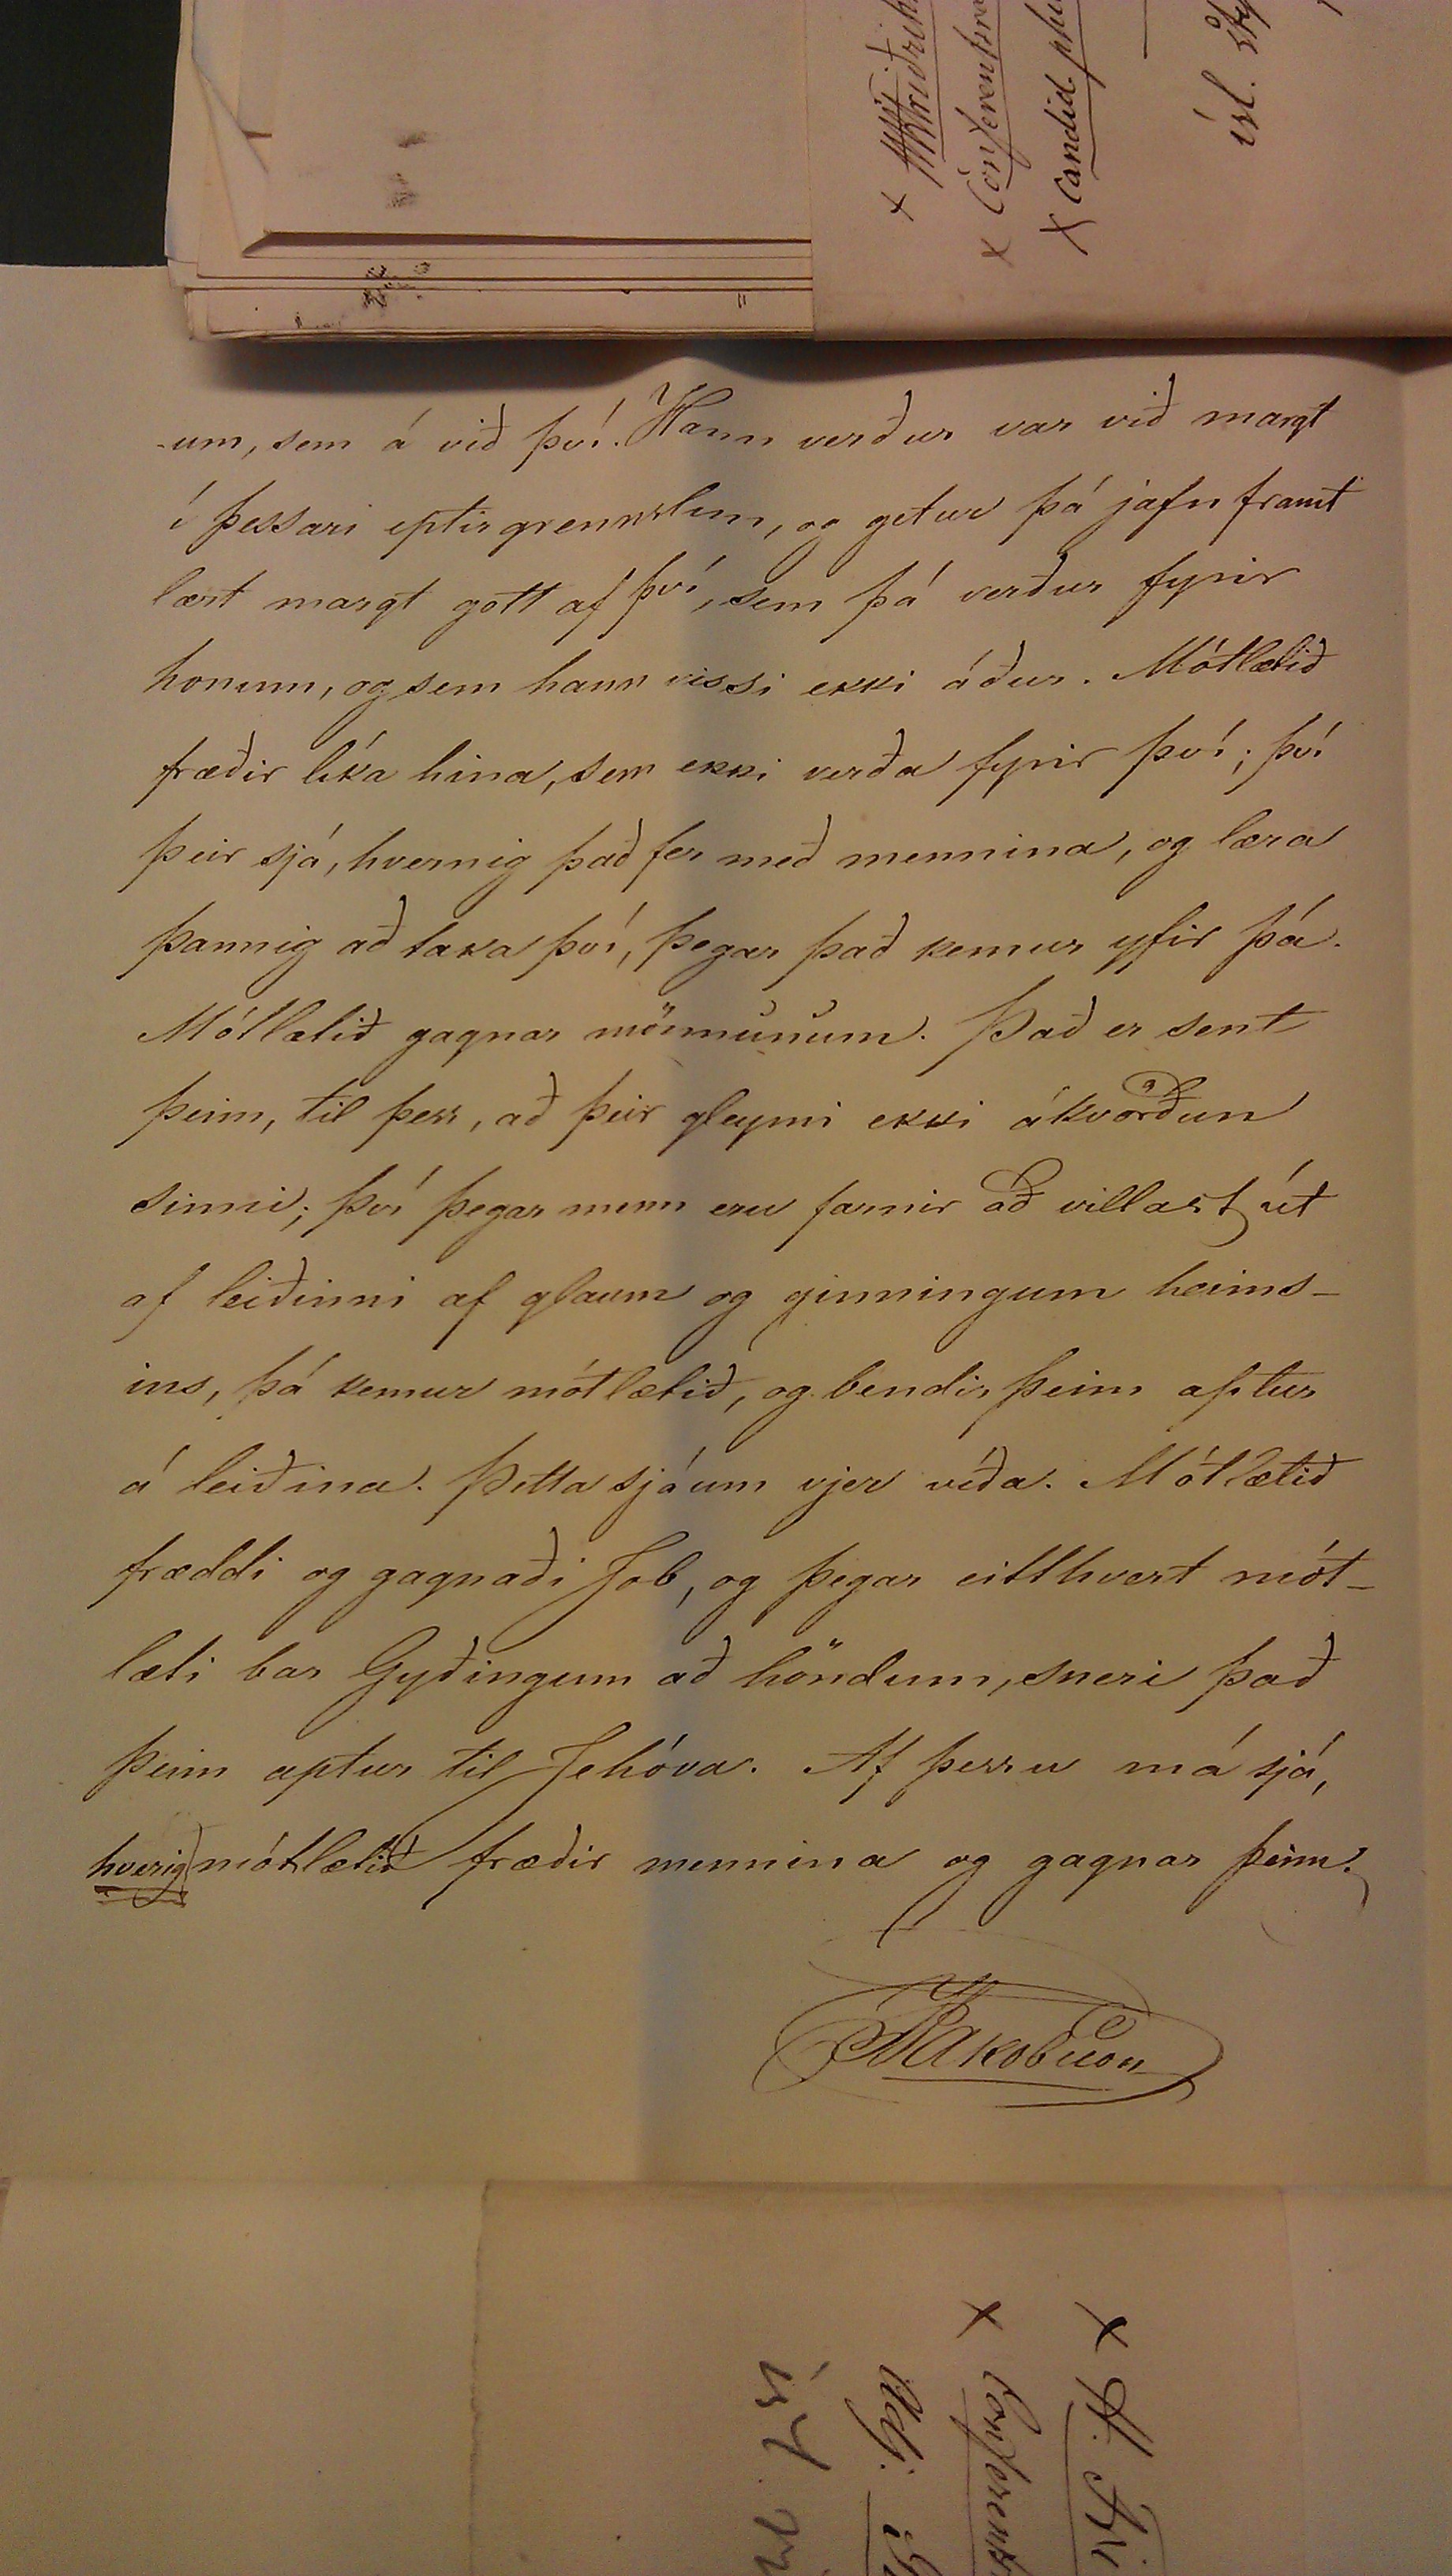 -um, sem á við því. Hann verður var við margt
í þessari eptirgrennslun, og getur þá jafnframt
lært margt gott af því, sem þá verður fyrir
honum, og sem hann vissi ekki áður. Mótlætið
fræðir líka hina, sem ekki verða fyrir því; því
þeir sjá, hvernig það fer með mennina, og læra
þannig að taka því, þegar það kemur yfir þá.
Mótlætið gagnar mönnunum. Það er sent
þeim, til þess, að þeir gleymi ekki ákvörðun
sinni; því þegar menn eru farnir að villast út
af leiðinni af glaum og ginningum heims-
ins, þá kemur mótlætið, og bendir þeim aptur
á leiðina. Þetta sjáum vjer víða. Mótlætið
fræddi og gagnaði Job, og þegar eitthvert mót-
læti bar Gyðingum að höndum, sneri það
þeim aptur til Jehóva. Af þessu má sjá,
hverig mótlætið fræðir mennina og gagnar þeim.
Jakobsson
x
x Conferents
x Candid. phil
ísl.
x H.
x Conferents
Adj.
ísl.